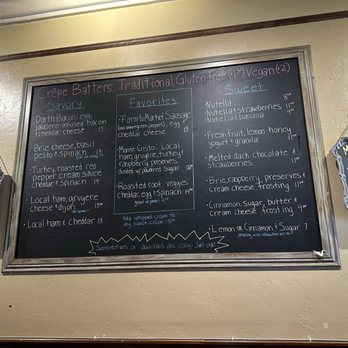 Crêpe Batters: Traditional, Gluten free (+1.50) Vegan (+2)
Savory
· Darth Bacon: egg,
jalapeno-infused bacon
+ cheddar cheese 15
· Brie cheese, basil
pesto & spinach 13
· Turkey, roasted red
pepper cream sauce
cheddar & spinach 14
· Local ham, gruyere
cheese & dijon 15
· Local ham & Cheddar 13
Favorites
· Farm to Market Sausage
egg &
cheddar cheese
· Monte Cristo: Local
ham, gruyere, turkey &
raspberry preserves,
dusted w/ powdered sugar
· Roasted root veggies
cheddar, egg & spinach
Add whipped cream to
any sweet crepe
Sweet
· Nutella
· Nutella & strawberries
· Nutella & banana
· Fresh fruit, lemon honey
yogurt & granola
· Melted dark chocolate &
strawberries
· Brie, raspberry preserves &
cream cheese frosting
· Cinnamon, sugar, butter &
cream cheese frosting
· Lemon or Cinnamon & Sugar 7
Substitutions or additions